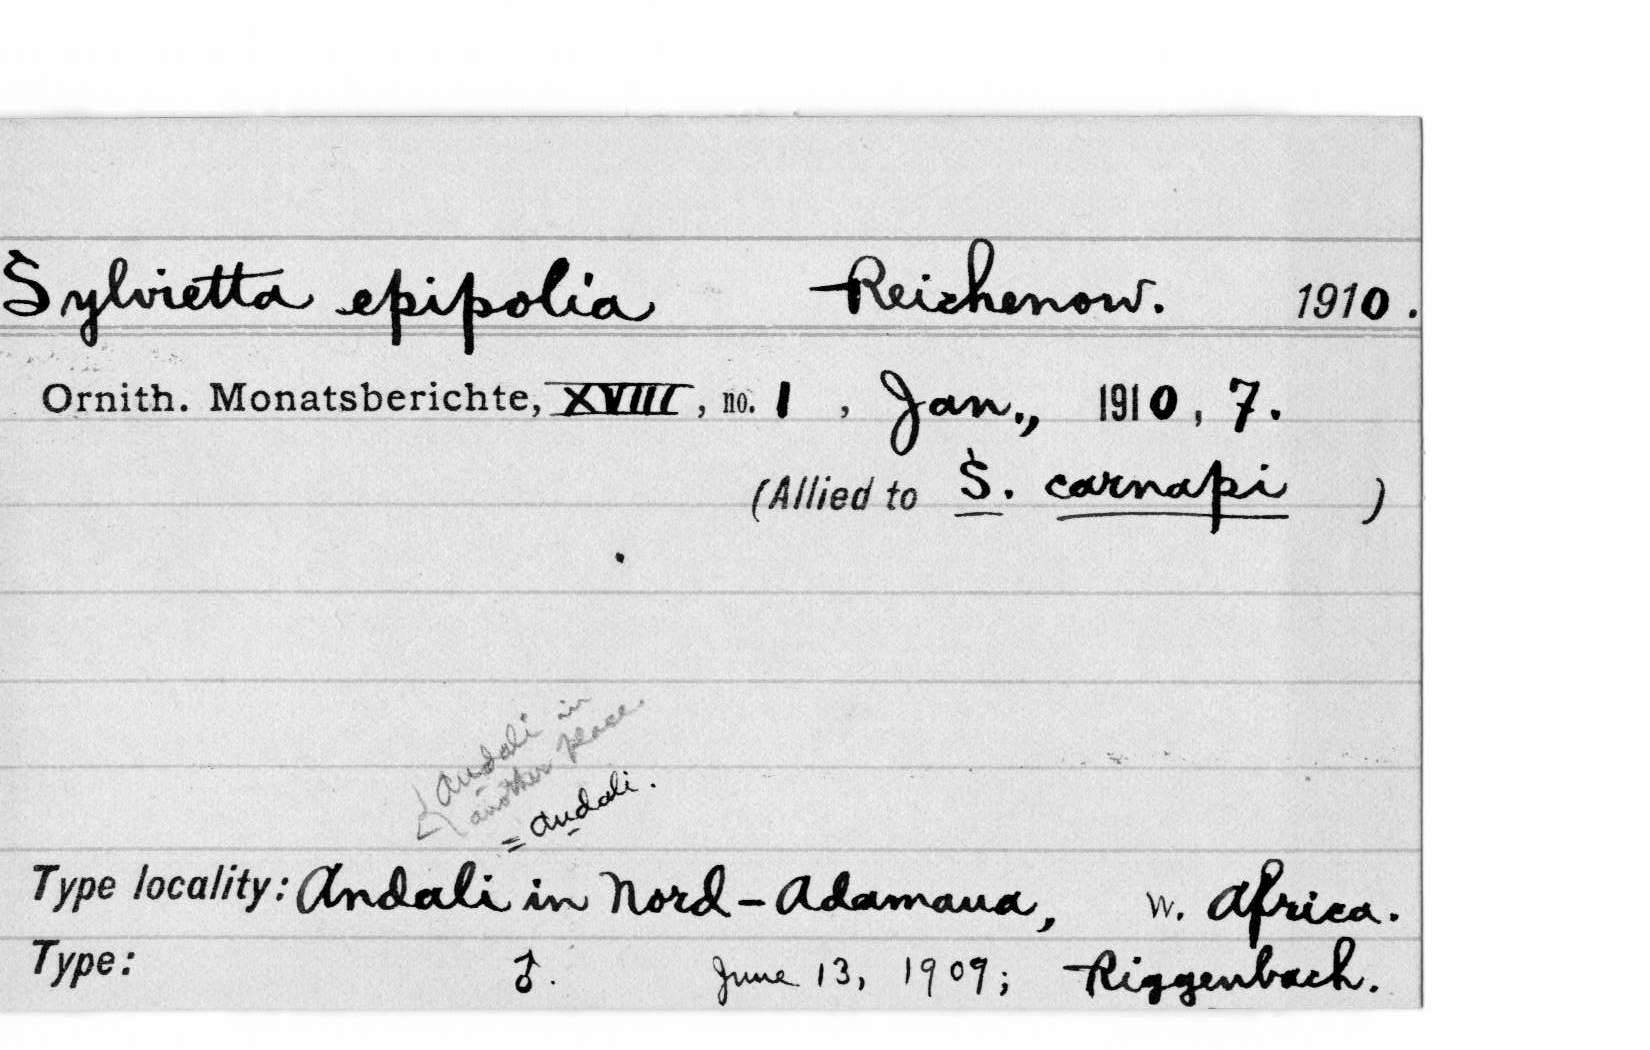 Sylvietta epipolia Reichenow. 1910.
Ornith. Monatsberichte, XVIII, no. 1, Jan., 1910, 7.
(Allied to S. carnapi)
Audali in
another place.
= Audali.
Type locality: Andali in Nord-Adamaua, W. Africa.
Type: ♂. June 13, 1909; Riggenbach.